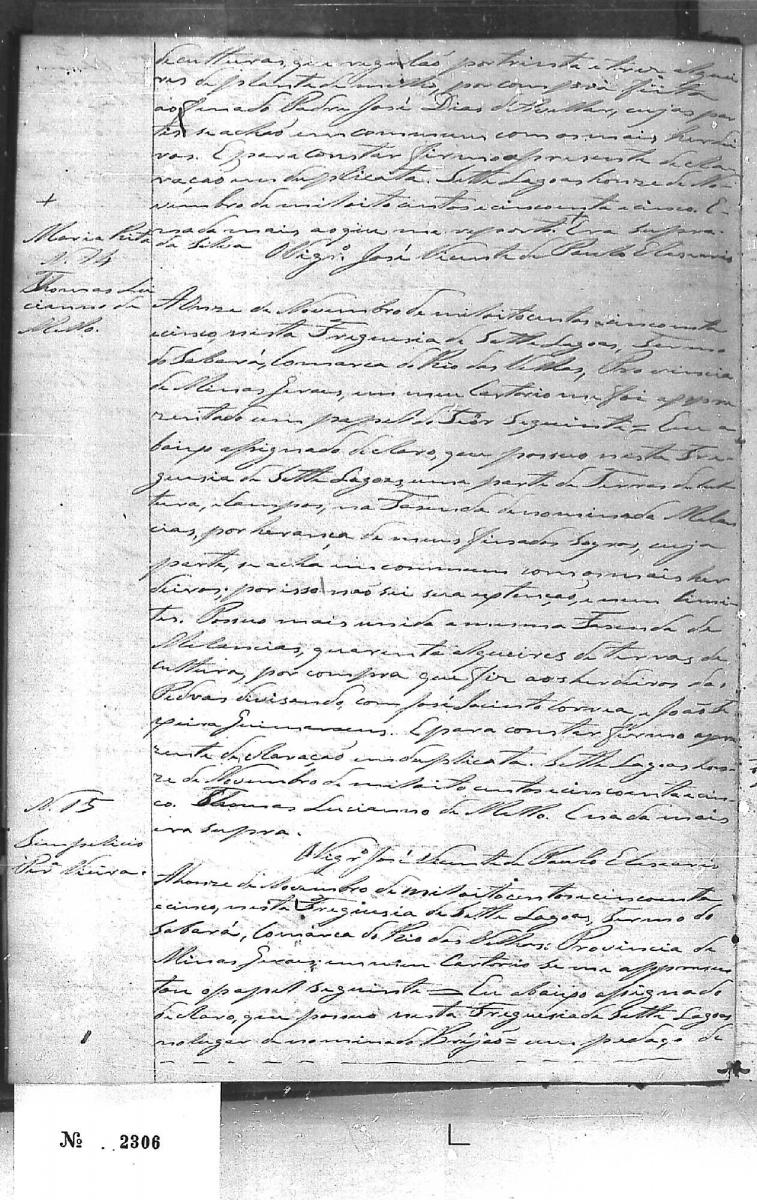 de culturas que regulão por trinta e trez alquei
res de planta de milho, por compra feita
ao finado Padre José Dias d'Avellar, cujas par
tes se achão em commum com os mais herdei
ros. E para constar firmo a presente decla
ração em duplicata. Sette Lagoas honze de No
vembro de mil oito centos e cincoenta e cinco. E
nada mais, ao que me reporto. Era supra.
+
Maria Rita
da Silva
O Vigrº. José Vicente de Paulo Eleuserio
N. 14
Thomas Lu
cianno de
Mello.
A Onze de Novembro de mil oito centos e cincoenta
e cinco, nesta Freguesia de Sette Lagoas, Termo
do Sabará, Comarca do Rio das Velhas, Provincia
de Minas Geraes, em meu Cartorio me foi appre
zentado um papel do Teor Seguinte = Eu a
baixo assignado declaro, que possuo nesta Fre
guesia de Sette Lagoas uma parte de Terras de cul
tura, e campos, na Fazenda denominada Melan
cias, por herança de meus finados Sogros, cuja
parte, se acha in commum com os mais her
deiros; por isso não sei sua extenção, e nem limi
tes. Possuo mais unida a mesma Fazenda de
Melancias, quarenta alqueires de terras de
culturas, por compra que fiz aos herdeiros das
Pedras divisando com José Jacinto Correa, e João Te
xeira Guimaraens. E para constar firmo a pre
zente declaração em duplicata. Sette Lagoas hon
ze de Novembro de mil oito centos e cincoenta e cin
co. Thomas Lucianno de Mello. E nada mais
era supra.
O Vigrº José Vicente de Paulo Eleuserio
N. 15
Simplicio
Vieira.
A honze de Novembro de mil oito centos e cincoenta
e cinco, nesta Freguesia de Sette Lagoas, Termo do
Sabará, Comarca do Rio das Velhas Provincia de
Minas Geraes; em meu Cartorio se me appresen
tou o papel seguinte = Eu abaixo assignado
declaro, que possuo nesta Freguesia de Sette Lagoas
no lugar denominado Brejão = um pedaço de
Nº 2306